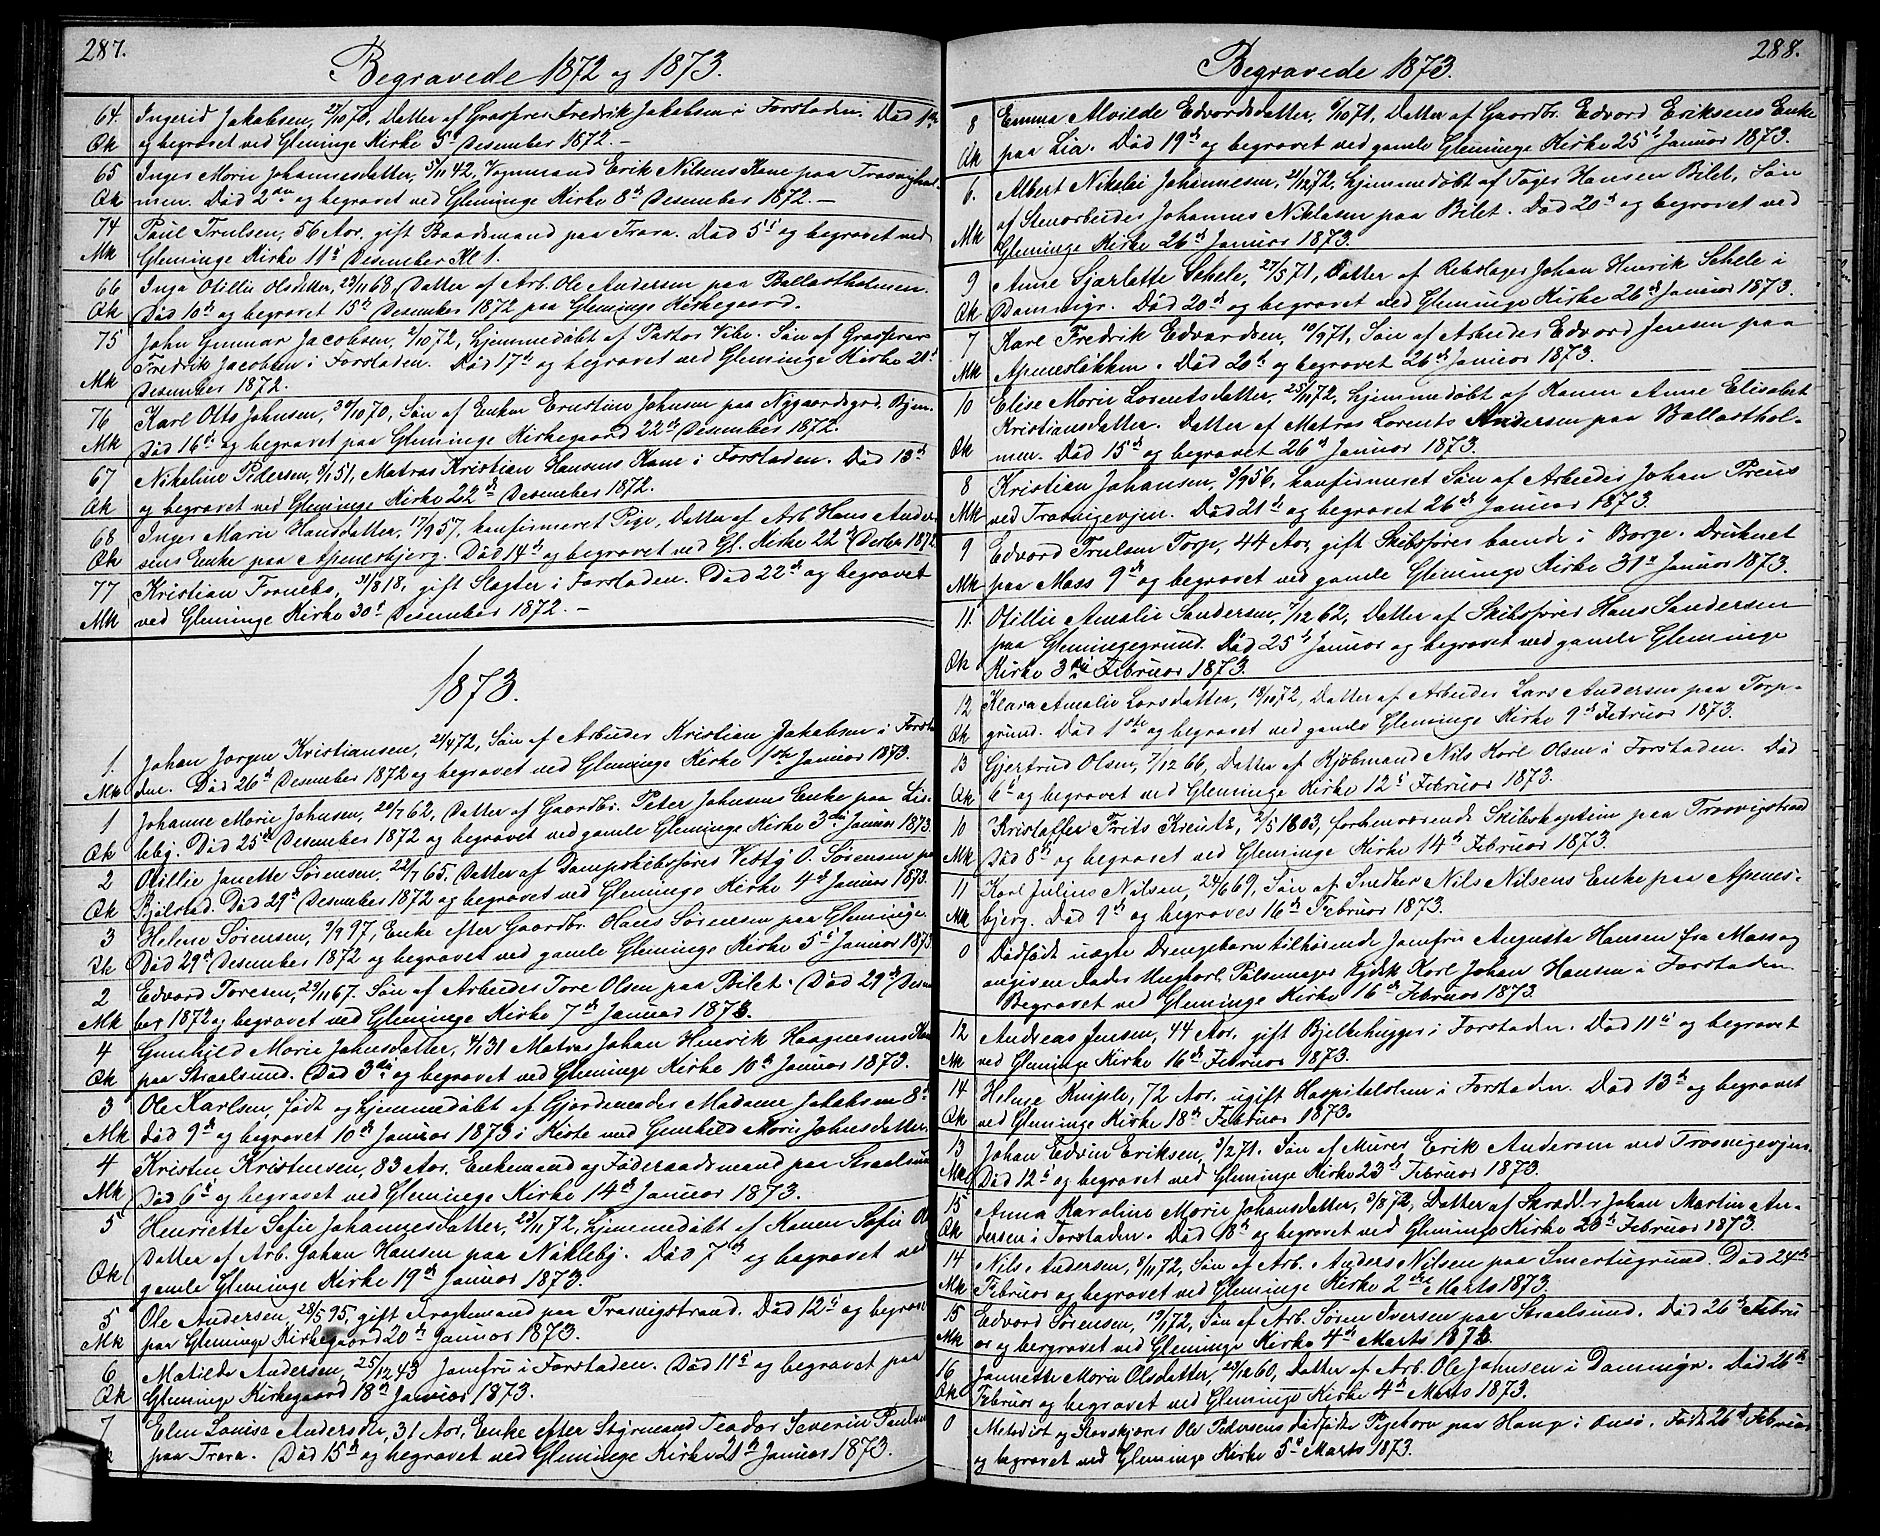 287.
Begravede 1872 og 1873.
64. Ingerid Jakobsen, 27/10 70, Datter af Fredrik Jakobsen i Forstaden. Død 1ste
Qk og begravet ved Glemminge Kirke 5te Desember 1872. —
65 Inger Marie Johannesdatter, 5/11 42, Vognmand Erik Nilsens Kone paa
Qk men. Død 2den og begravet ved Glemminge Kirke 8de Desember 1872. —
74 Paul Trulsen, 56 Aar, gift Baadsmand paa Trara. Død 5te og begravet ved
Mk Glemminge Kirke 11te Desember Kl 1.
66 Inga Otillie Olsdatter, 23/11 68, Datter af Arb. Ole Andersen paa Ballastholmen.
Qk Død 10de og begravet 15de Desember 1872 paa Glemminge Kirkegaard.
75 John Gunnar Jacobsen, 2/10 72, hjemmedøbt af Pastor Vibe. Søn af
Mk Fredrik Jacobsen i Forstaden. Død 17de og begravet ved Glemminge Kirke 21de
Desember 1872.
76 Karl Otto Johnsen, 30/10 70, Søn af Enken Ernstine Johnsen paa Nygaardsgrd. Bjem.
Mk Død 16de og begravet paa Glemminge Kirkegaard 22de Desember 1872.
67 Nikoline Pedersen, 51, Matros Kristian Hansens Kone i Forstaden. Død 13de
Qk og begravet ved Glemminge Kirke 22de Desember 1872.
68 Inger Marie Hansdatter, 17/9 57, konfirmeret Pige, Datter af Arb. Hans Ander-
Qk sens Enke paa Apenesbjerg. Død 14de og begravet ved Gl. Kirke 22de Desbr 1872
77 Kristian Fornebo, 31/8 18, gift Slagter i Forstaden. Død 22de og begravet
Mk ved Glemminge Kirke 30te Desember 1872. —
1873.
1. Johan Jørgen Kristiansen, 21/4 72, Søn af Arbeider Kristian Jakobsen i Forsta-
Mk den. Død 26de Desember 1872 og begravet ved Glemminge Kirke 1ste Januar 1873.
1 Johanne Marie Johnsen, 20/7 62, Datter af Gaardbr. Peter Johnsens Enke paa Lis-
Qk leby. Død 25de Desember 1872 og begravet ved gamle Glemminge Kirke 3die Januar 1873.
2 Otillie Janette Sørensen, 22/7 65. Datter af Dampskibsfører O. Sørensen paa
Qk Død 29de Desember 1872 og begravet ved Glemminge Kirke 4de Januar 1873.
3 Helene Sørensen, 9/9 97, Enke efter Gaardbr. Hans Sørensen paa Glemminge
Qk Død 29de Desember 1872 og begravet ved gamle Glemminge Kirke 5te Januar 1873
2 Edvard Toresen, 23/11 67. Søn af Arbeider Tore Olsen paa Bilet. Død 29de Desem-
Mk ber 1872 og begravet ved Glemminge Kirke 7de Januar 1873.
4 Gunhild Marie Johnsdatter, 4/1 31 Matros Johan Henrik Haagensens Kone
Qk paa Straalsund. Død 3die og begravet ved Glemminge Kirke 10de Januar 1873.
3 Ole Karlsen, født og hjemmedøbt af Gjordemoder Madame Jakobsen 8de
Mk død 9de og begravet 10de Januar 1873 i Kiste med Gunhild Marie Johnsdatter.
4 Kristen Kristensen, 83 Aar. Enkemand og Føderaadsmand paa Straalsund
Mk Død 6te og begravet ved Glemminge Kirke 14de Januar 1873.
5 Henriette Sofie Johannesdatter, 23/11 72, hjemmedøbt af Konen Sofie
Datter af Arb. Johan Hansen paa Nøkleby. Død 7de og begravet ved
Qk gamle Glemminge Kirke 19de Januar 1873.
5 Ole Andersen, 28/5 95, gift paa Trosvigstrand. Død 12te og begravet
Mk paa Glemminge Kirkegaard 20de Januar 1873.
6 Matilde Andersen, 25/12 43 Jomfru i Forstaden. Død 11te og begravet paa
Qk Glemminge Kirkegaard 18de Januar 1873.
7 Elen Louise Andersen, 31 Aar, Enke efter Styrmand Teodor Severin Paulsen
paa Trara. Død 15de og begravet ved Glemminge Kirke 21de Januar 1873.
288.
Begravede 1873.
8 Emma Alvilde Edvardsdatter, 6/10 71, Datter af Gaardbr. Edvard Eriksens Enke
Qk paa Lia. Død 19de og begravet ved gamle Glemminge Kirke 25te Januar 1873.
6. Albert Nikolai Johannesen, 21/12 72, hjemmedøbt af Hansen Bilet, Søn
af Stenarbeider Johannes Niklasen paa Bilet. Død 20de og begravet ved
Mk Glemminge Kirke 26de Januar 1873.
9 Anne Sjarlotte Schele, 27/5 71, Datter af Rebslager Johan Henrik Schele i
Qk Dammyr. Død 20de og begravet ved Glemminge Kirke 26de Januar 1873.
7 Karl Fredrik Edvardsen, 10/9 71, Søn af Arbeider Edvard Jensen paa
Mk Apenesløkken. Død 20de og begravet 26de Januar 1873.
10 Elise Marie Lorentsdatter, 25/11 72, hjemmedøbt af Konen Anne Elisabet
Kristiansdatter. Datter af Matros Lorents Andersen paa Ballasthol-
Qk men. Død 15de og begravet 26de Januar 1873.
8 Kristian Johansen, 3/9 56, konfirmeret Søn af Arbeider Johan Preus
Mk ved Trosvigevejen. Død 21de og begravet 26de Januar 1873.
9 Edvard Trulsen Torp, 44 Aar, gift Skibsfører boende i Borge. Druknet
Mk paa Moss 9de og begravet ved gamle Glemminge Kirke 31te Januar 1873.
11. Otillie Amalie Sandersen, 7/12 62, Datter af Skibsfører Hans Sandersen
paa Glemmingegrund. Død 25de Januar og begravet ved gamle Glemminge
Qk Kirke 3die Februar 1873.
12 Klara Amalie Larsdatter, 18/10 72, Datter af Arbeider Lars Andersen paa Torp-
Qk grund. Død 1ste og begravet ved gamle Glemminge Kirke 9de Februar 1873.
13 Gjertrud Olsen, 7/12 66, Datter af Kjøbmand Nils Karl Olsen i Forstaden. Død
Qk 6te og begravet ved Glemminge Kirke 12te Februar 1873.
10 Kristoffer Frits Kreutz, 2/5 1803, forhenværende Skibskaptein paa Trosvigstrand
Mk Død 8de og begravet ved Glemminge Kirke 14de Februar 1873.
11 Karl Julius Nilsen, 24/6 69, Søn af Snedker Nils Nilsens Enke paa Apenes-
Mk bjerg. Død 9de og begraves 16de Februar 1873.
0 Dødfødt uægte Drengebarn tilhørende Jomfru Augusta Hansen fra Moss og
angiven Fader Ungkarl Pølsemager Karl Johan Hansen i Forstaden
Begravet ved Glemminge Kirke 16de Februar 1873.
12 Andreas Jensen, 44 Aar, gift Bjelkehugger i Forstaden. Død 11te og begravet
Mk ved Glemminge Kirke 16de Februar 1873.
14 Helene Kniple, 72 Aar. ugift Hospitalslem i Forstaden. Død 13de og begravet
Qk ved Glemminge Kirke 18de Februar 1873.
13 Johan Edvin Eriksen, 3/2 71. Søn af Murer Erik Andersen ved Trosvigevejen.
Mk Død 12te og begravet ved Glemminge Kirke 23de Februar 1873.
15 Anna Karoline Marie Johansdatter, 3/8 72, Datter af Skrædder Johan Martin An-
Qk dersen i Forstaden. Død 18de og begravet ved Glemminge Kirke 20de Februar 1873.
14 Nils Andersen, 8/11 72, Søn af Arb. Anders Nilsen paa Smertugrund. Død 24de
Mk Februar og begravet ved Glemminge Kirke 2den Marts 1873.
15 Edvard Sørensen, 19/1 72, Søn af Arb. Søren Iversen paa Straalsund. Død 26de Febru
Mk ar og bergravet ved Glemminge Kirke 4de Marts 1873.
16 Jannette Marie Olsdatter, 23/12 60, Datter af Arb. Ole Johnsen i Dammyr. Død 26de
Qk Februar og begravet ved Glemminge Kirke 4de Marts 1873.
0 Metodist og Skovskjører Ole Pedersens dødfødte Pigebarn paa Hauge i Onsø. Født 26de Februar
og begravet ved Glemminge Kirke 5te Marts 1873.